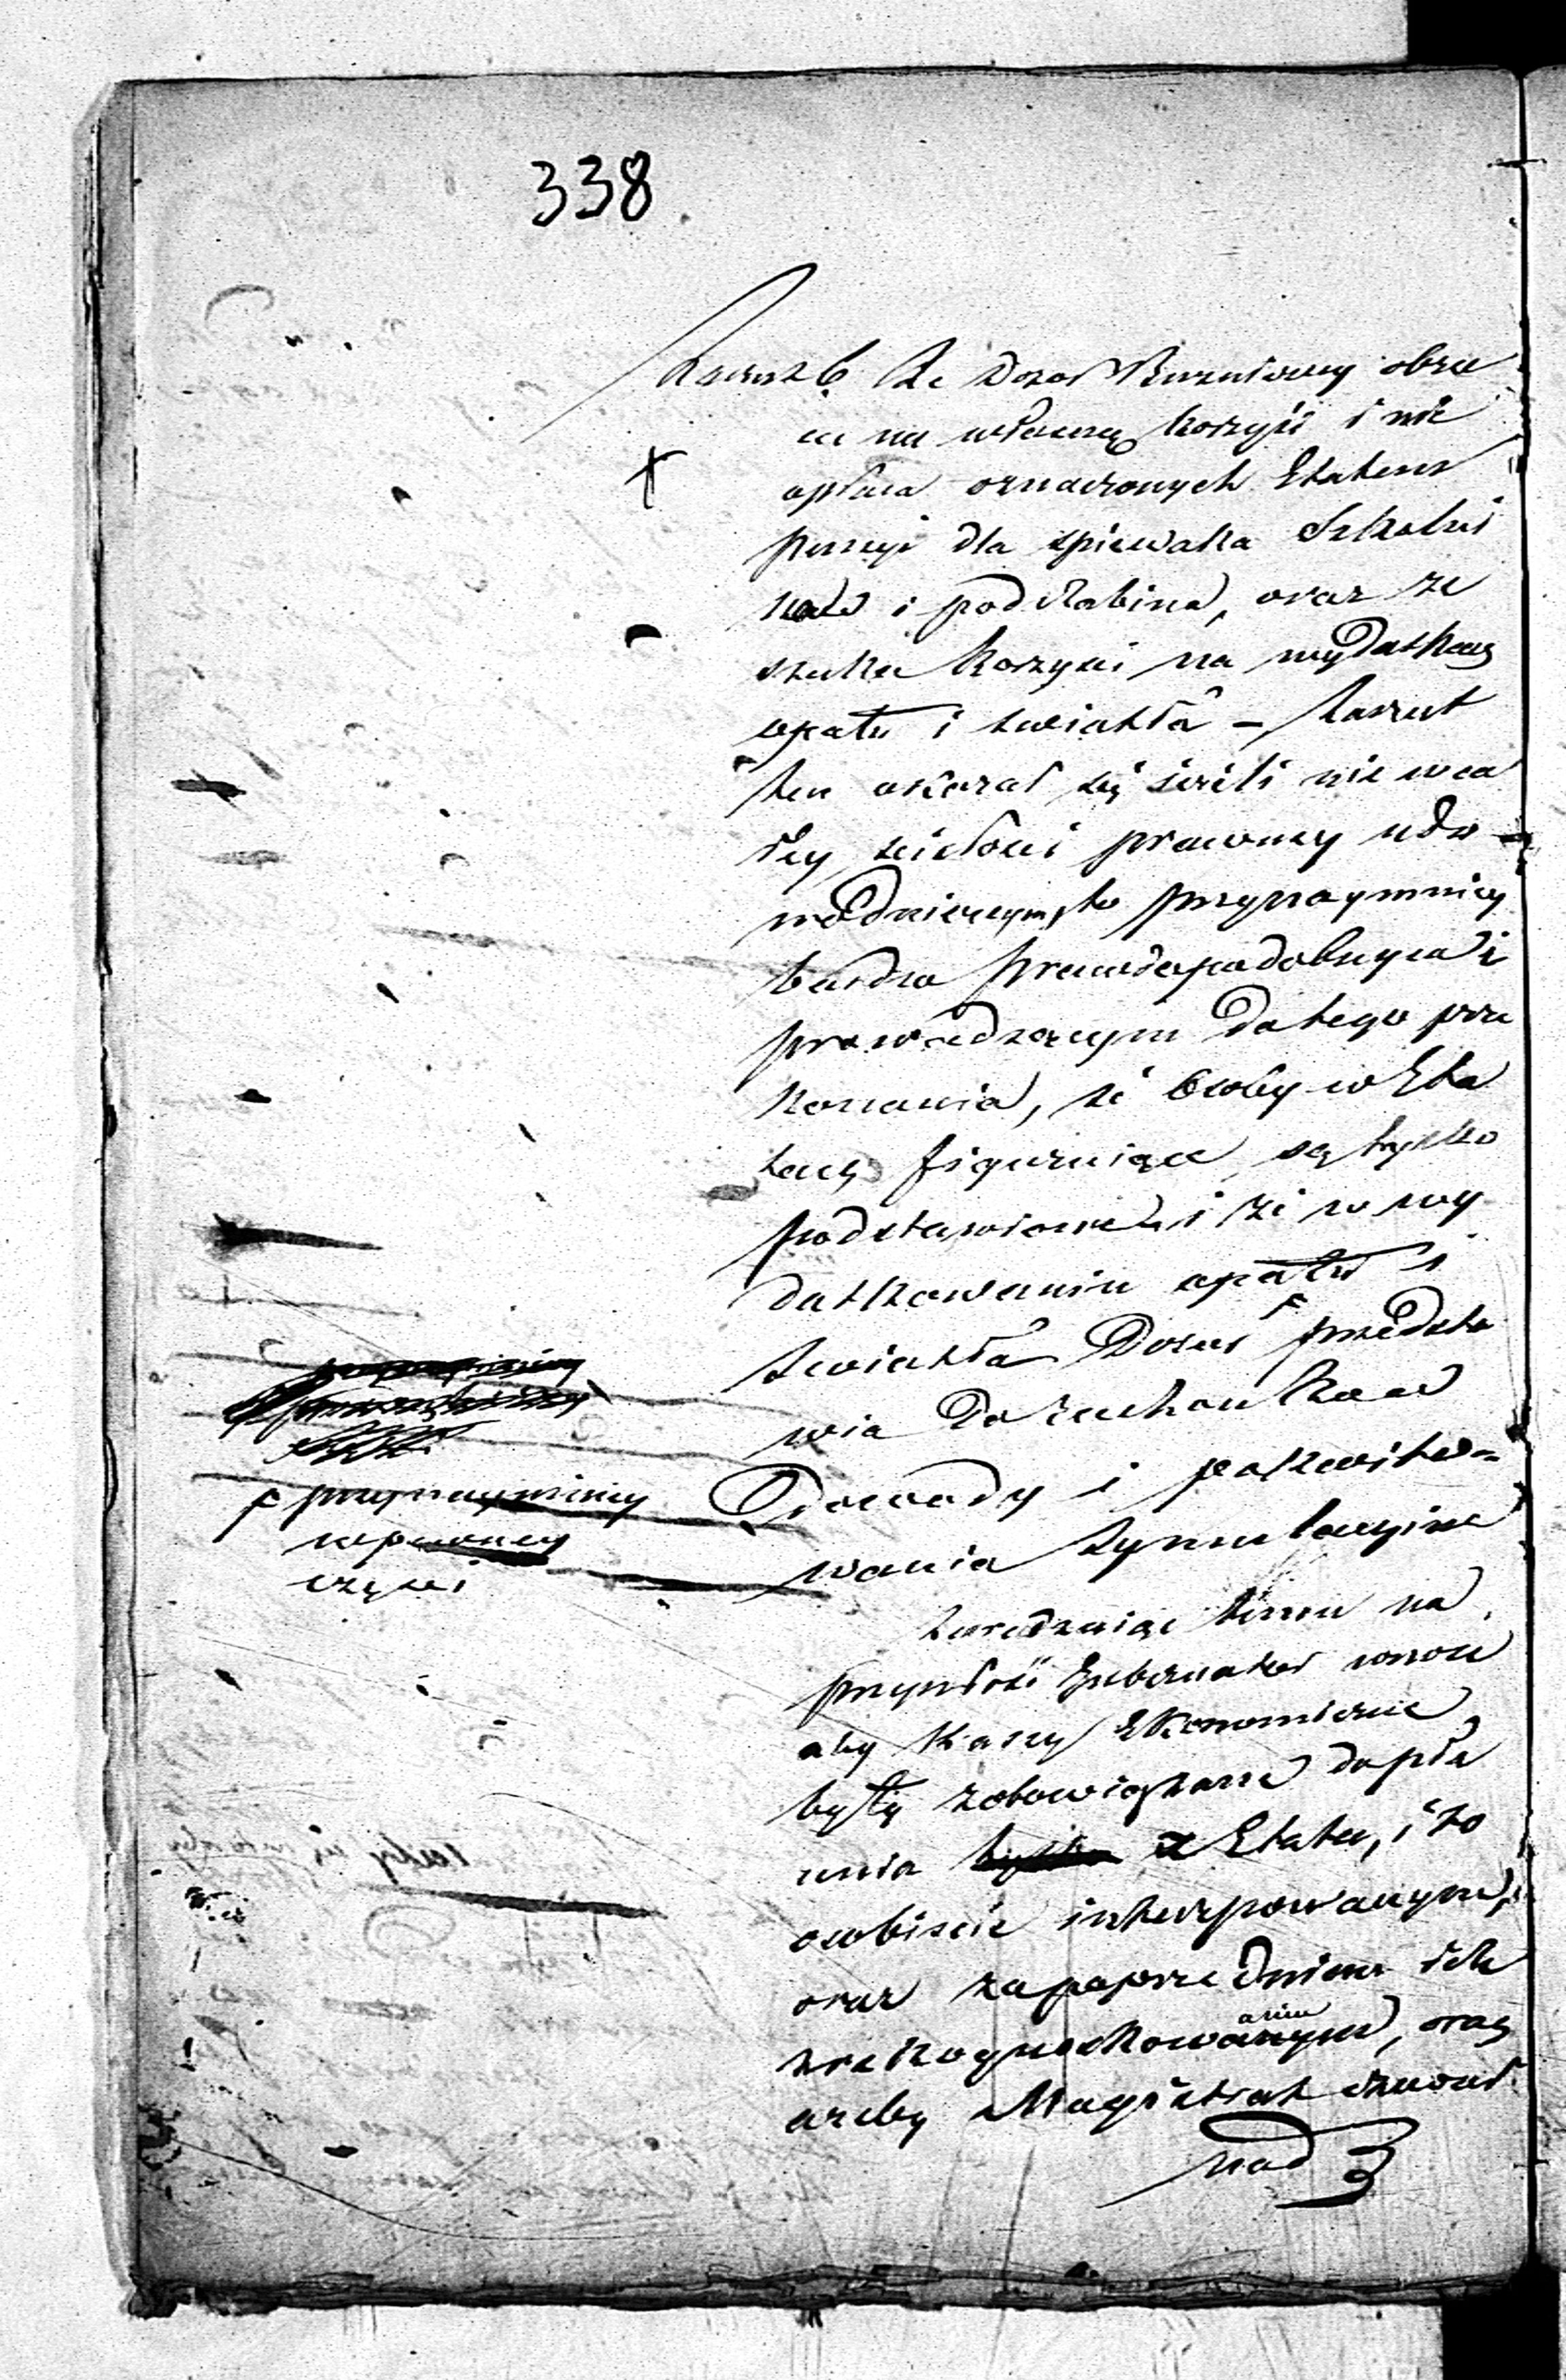 338
Zarzut 6. Że Dozor Bużniczny obra
ca na własną korzyść i nie
opłaca oznaczonych Etatem
pensyi dla spiewaka Szkolni
ków i podRabina, oraz że
szuka korzyści na wydatkach
opału i światła – Zarzut
ten okazał się jeżeli nie w ca
łey scisłości prawney udo-
wodnionym, to przynaymniey
bardzo prawdopodobnym i
prowadzącym do tego prze
konania, że osoby w Eta
tach figurujące są tylko
podstawione, i że w wy
datkowaniu opału i
światła Dozor F przedsta
wia Do rachunków
Dowody i pokwito-
wania symulacyine
F przynaymniey
w pewney
części
Zaradzając temu na
przyszłość Gubernator wnosi
aby Kassy Ekonomiczne
były zobowiązane do pła
cenia z Etatu, i to
osobiście interesowanym,
oraz za poprzedniem ich
zrekognoskowaniem, oraz
ażeby Magistrat czuwał
nad